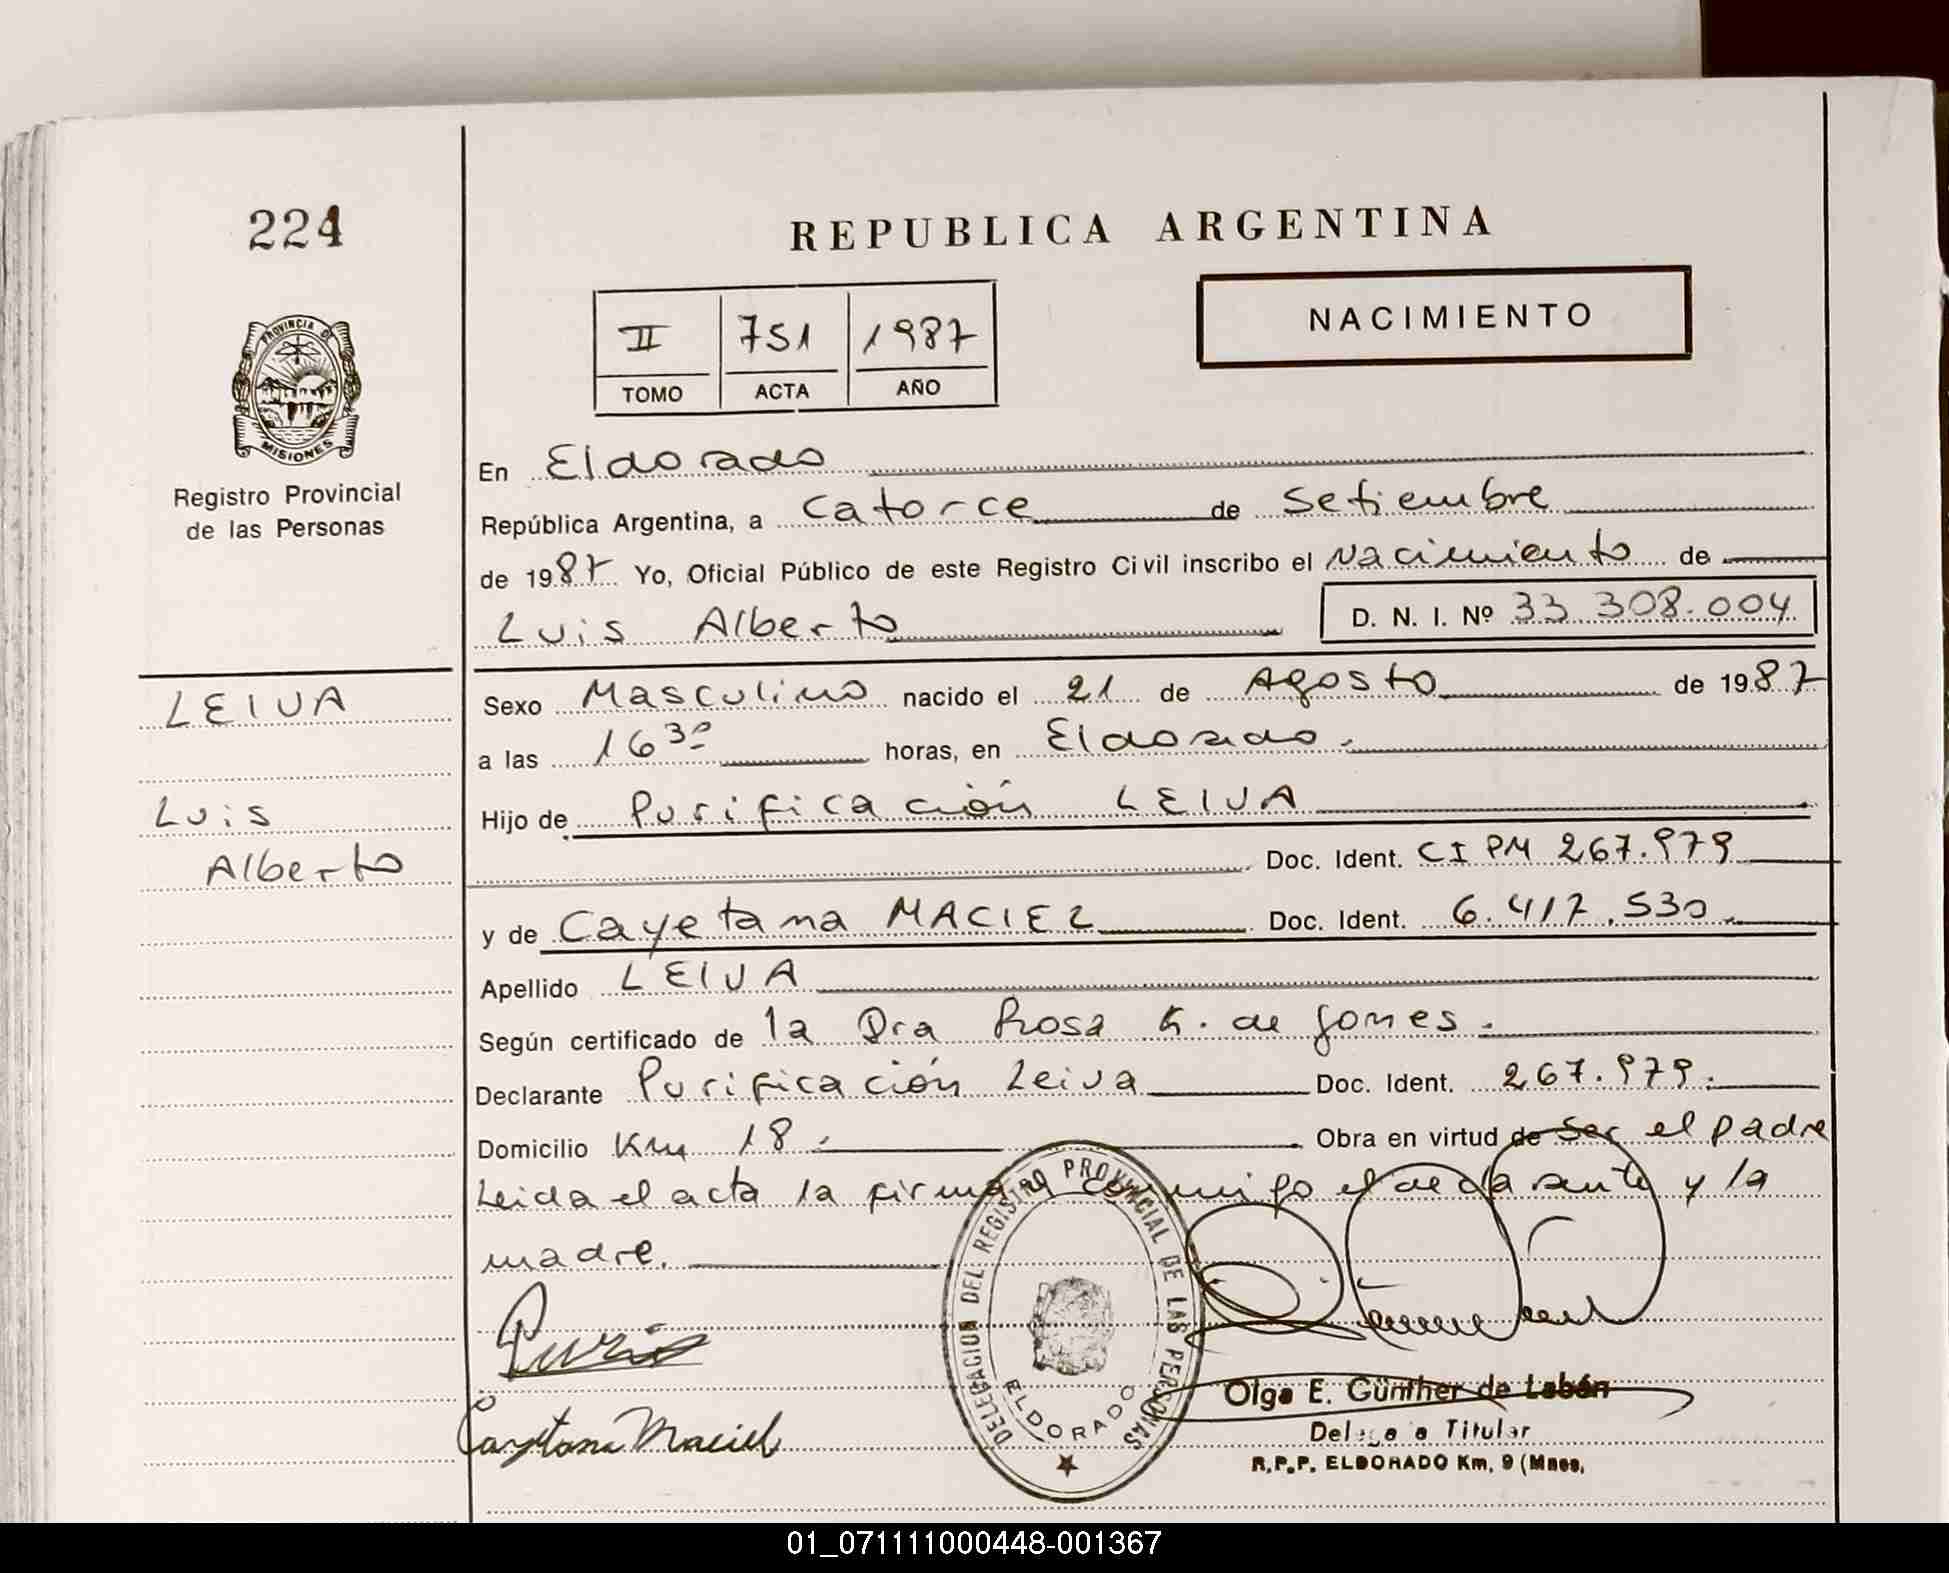 224
REPUBLICA ARGENTINA
PROVINCIA D
MISIONES
Registro Provincial
de las Personas
II 751 1987
TOMO ACTA AÑO
NACIMIENTO
En Eldorado
República Argentina, a Catorce de Setiembre
de 1987 Yo, Oficial Público de este Registro Civil inscribo el Nacimiento de
Luis Alberto D. N. I. Nº 33.308.004
LEIVA
Luis
Alberto
Sexo Masculino nacido el 21 de Agosto de 1987
a las 16 30 horas, en Eldorado.
Hijo de Purificación LEIVA
Doc. Ident. CI PM 267.979
y de Cayetana MACIEL Doc. Ident. 6.417.530
Apellido LEIVA
Según certificado de la Dra Rosa K. de Jones.
Declarante Purificación Leiva Doc. Ident. 267.979.
Domicilio Km 18. Obra en virtud de ser el padre
Leida el acta la firman conmigo el declarante y la
madre.
DELEGACION DEL REGISTRO PROVINCIAL DE LAS PERSONAS
ELDORADO
Cayetana Maciel
Olga E. Günther de Labán
Delegada Titular
R.P.P. ELDORADO Km. 9 (Mnes.
01_071111000448-001367